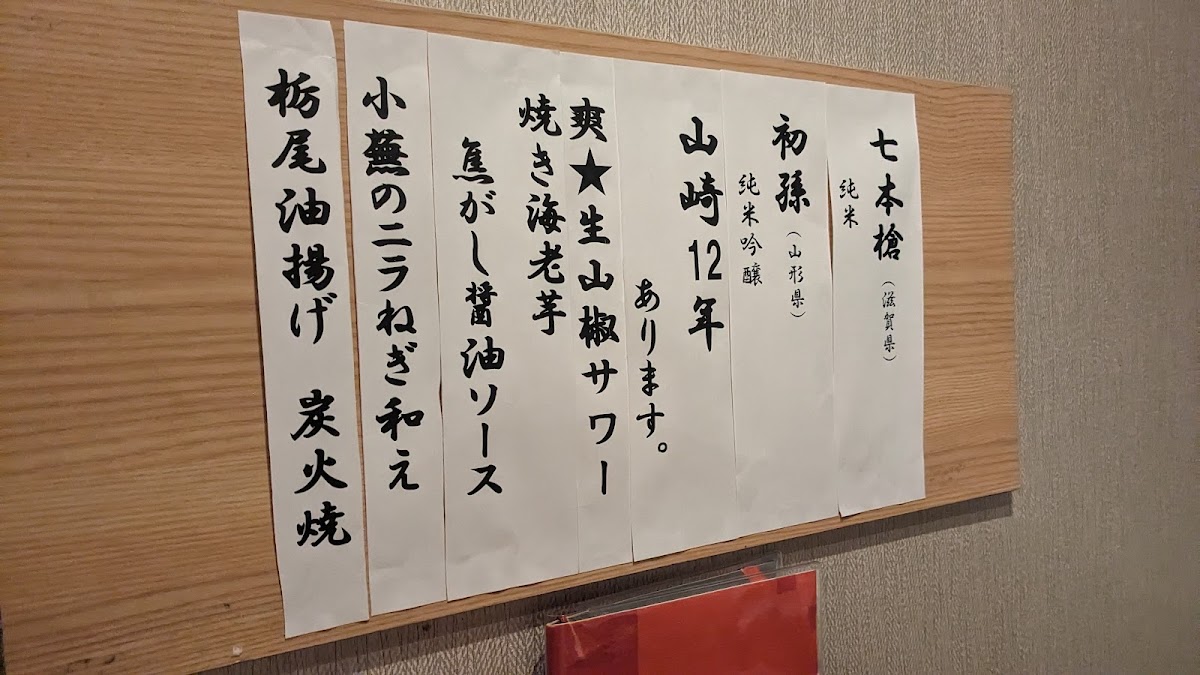 七本槍（滋賀県）
純米
初孫（山形県）
純米吟醸
山崎12年
あります。
爽★生山椒サワー
焼き海老芋
焦がし醤油ソース
小蕪のニラねぎ和え
栃尾油揚げ 炭火焼